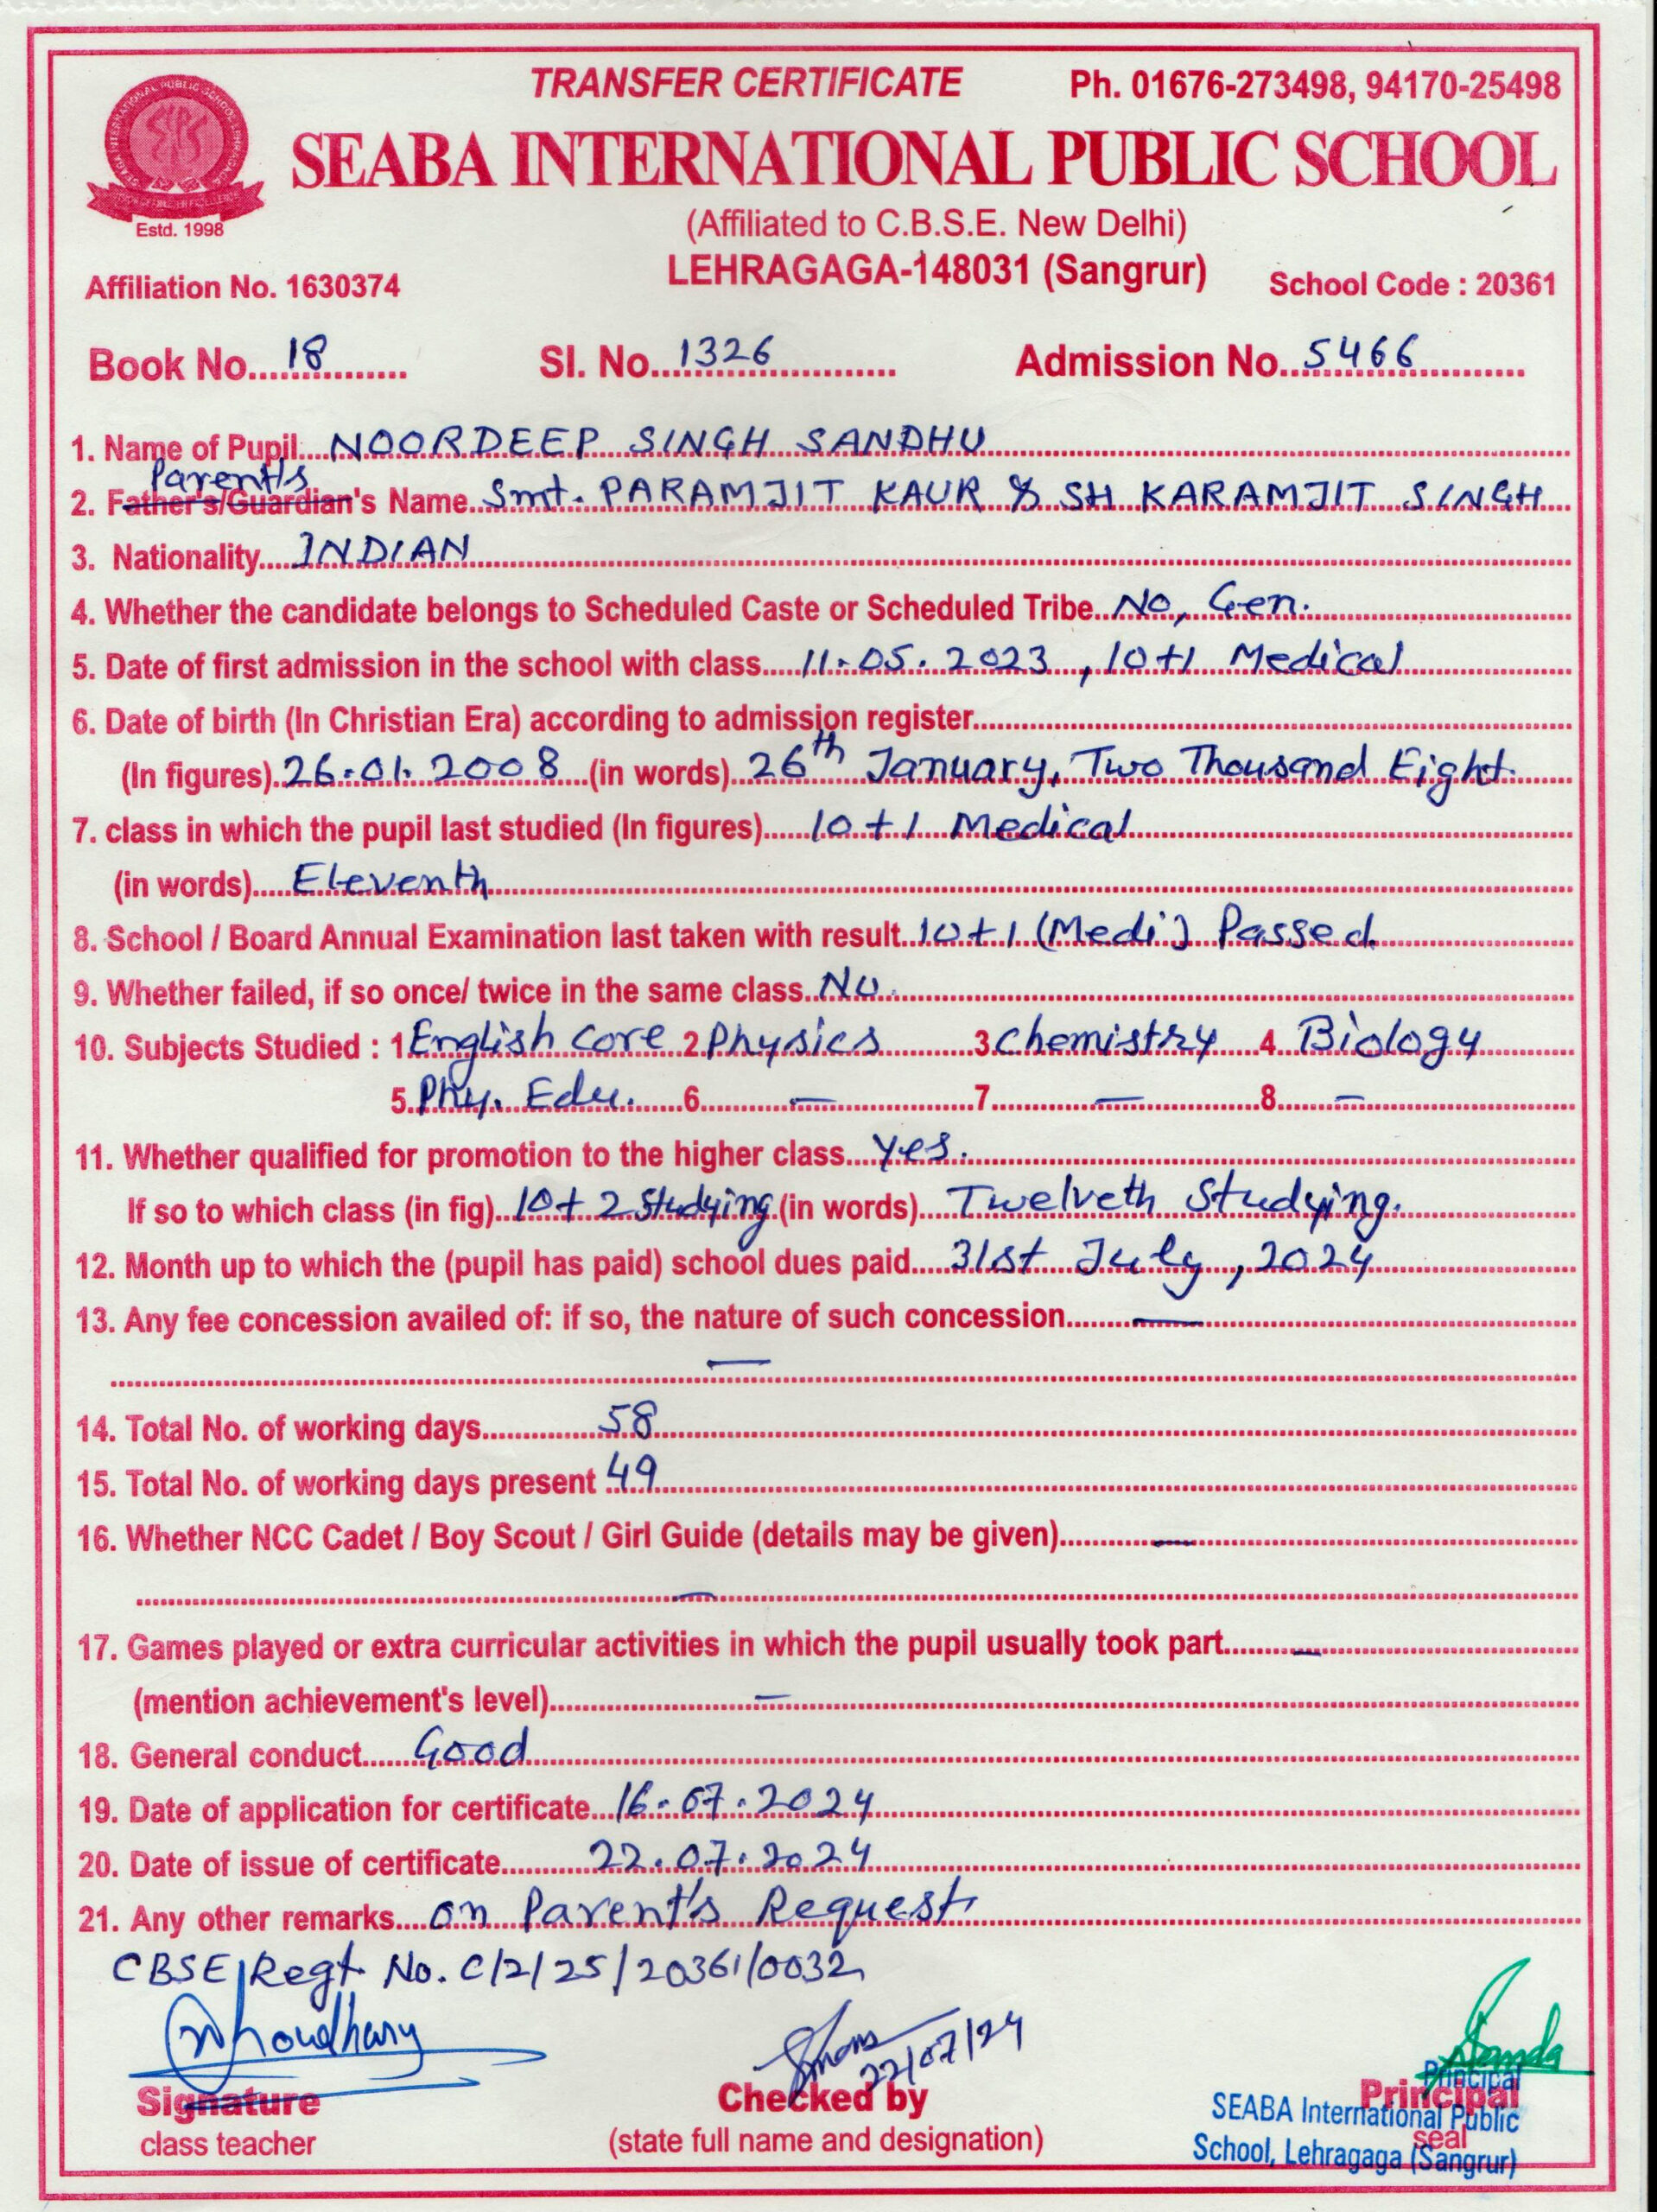 TRANSFER CERTIFICATE Ph. 01676-273498, 94170-25498
SEABA INTERNATIONAL PUBLIC SCHOOL
Estd. 1998
(Affiliated to C.B.S.E. New Delhi)
LEHRAGAGA-148031 (Sangrur)
Affiliation No. 1630374 School Code : 20361
Book No. 18 Sl. No. 1326 Admission No. 5466
1. Name of Pupil NOORDEEP SINGH SANDHU
Parent's
2. Father's/Guardian's Name Smt. PARAMJIT KAUR & SH KARAMJIT SINGH
3. Nationality INDIAN
4. Whether the candidate belongs to Scheduled Caste or Scheduled Tribe No, Gen.
5. Date of first admission in the school with class 11.05.2023, 10+1 Medical
6. Date of birth (In Christian Era) according to admission register
(In figures) 26.01.2008 (in words) 26th January, Two Thousand Eight
7. class in which the pupil last studied (In figures) 10+1 Medical
(in words) Eleventh
8. School / Board Annual Examination last taken with result 10+1 (Medi.) Passed
9. Whether failed, if so once/ twice in the same class No.
10. Subjects Studied : 1 English Core 2 Physics 3 Chemistry 4 Biology
5. Phy. Edu. 6 — 7 — 8 —
11. Whether qualified for promotion to the higher class Yes.
If so to which class (in fig) 10+2 Studying (in words) Twelveth Studying.
12. Month up to which the (pupil has paid) school dues paid 31st July, 2024
13. Any fee concession availed of: if so, the nature of such concession —
—
14. Total No. of working days 58
15. Total No. of working days present 49
16. Whether NCC Cadet / Boy Scout / Girl Guide (details may be given) —
—
17. Games played or extra curricular activities in which the pupil usually took part —
(mention achievement's level) —
18. General conduct Good
19. Date of application for certificate 16.07.2024
20. Date of issue of certificate 22.07.2024
21. Any other remarks on Parent's Request
CBSE Regt No. C/2/25/20361/0032
22/07/24
Signature Checked by Principal
class teacher (state full name and designation) seal
Principal
SEABA International Public
School, Lehragaga (Sangrur)